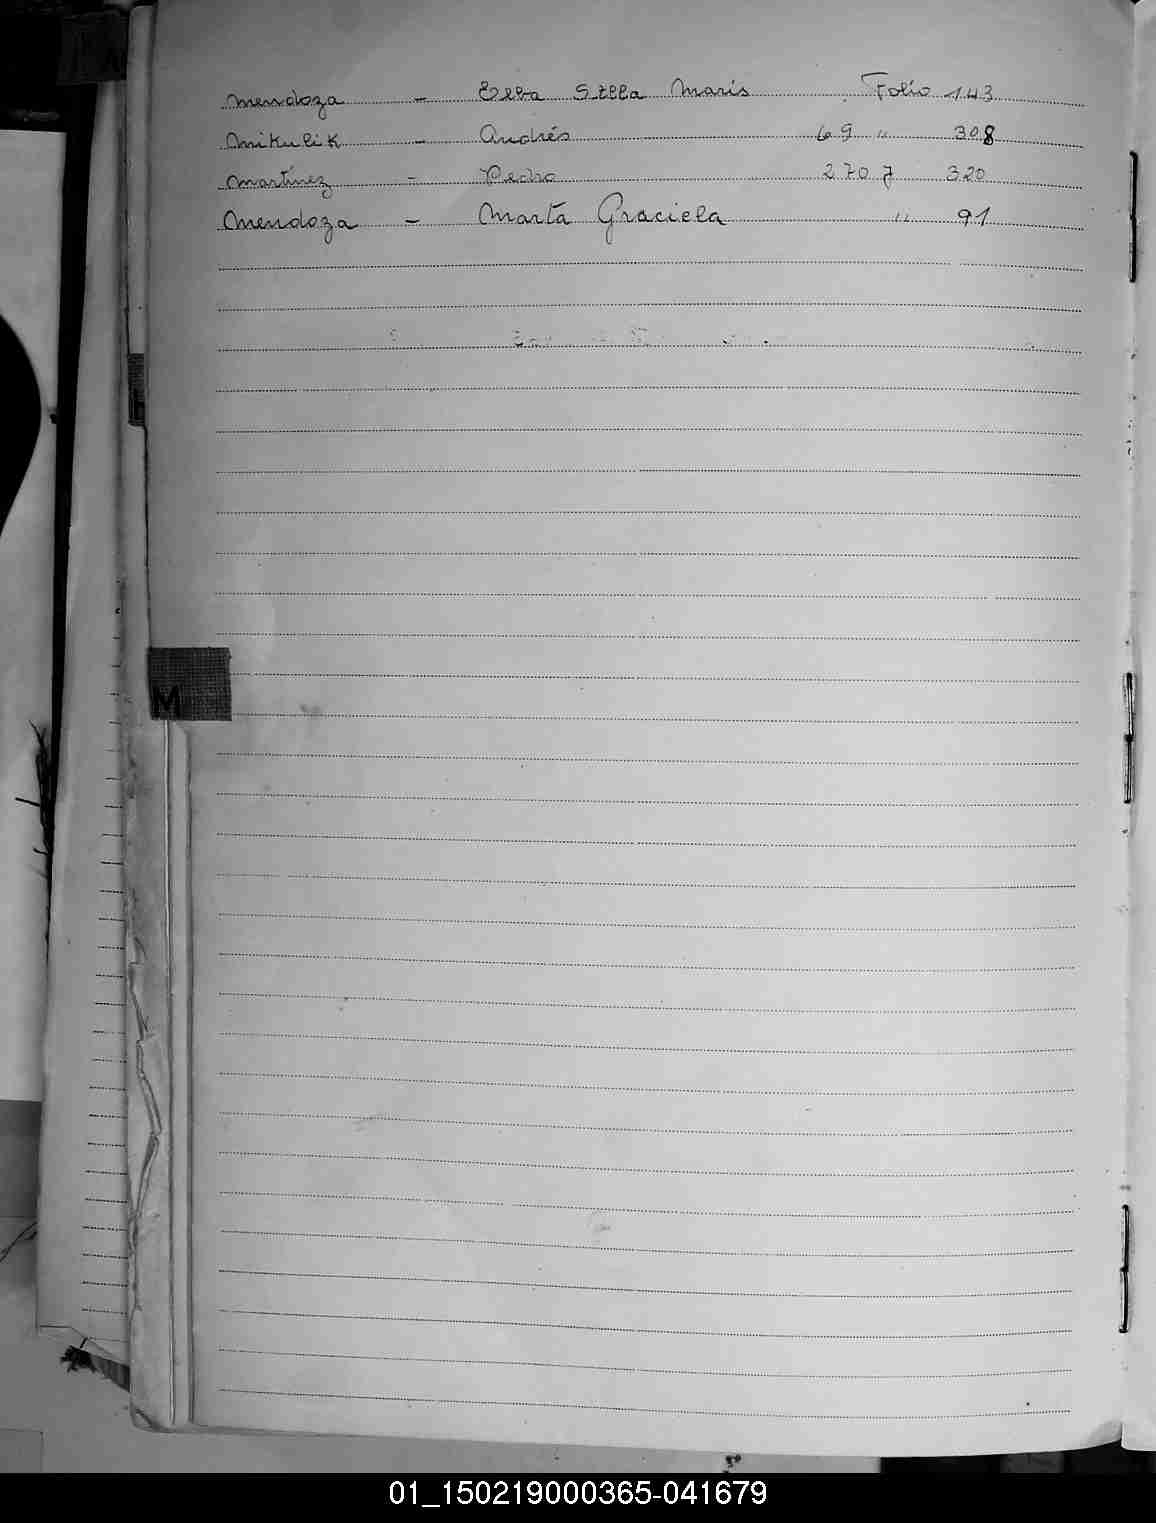 Mendoza - Elba Stella Maris Folio 143
Mikulik - Andrés 69 " 308
Martínez - Pedro 270 320
Mendoza - Marta Graciela " 91
M
01_150219000365-041679